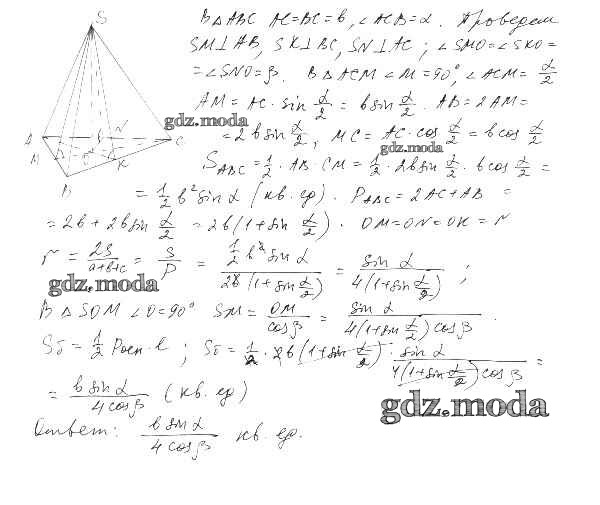 S
A
M
B
K
C
N
O
В ΔABC AC=BC=b, ∠ACB=α. Проведем
SM⊥AB, SK⊥BC, SN⊥AC; ∠SMO=∠SKO=
=∠SNO=β. В ΔACM ∠M=90°, ∠ACM= α/2
AM=AC·sin α/2 = b sin α/2. AB=2AM=
=2b sin α/2, MC= AC·cos α/2 = b cos α/2
S_ABC = 1/2·AB·CM= 1/2·2b sin α/2·b cos α/2 =
= 1/2 b² sin α (кв. ед). P_ABC = 2AC+AB =
= 2b+2b sin α/2 = 2b(1+sin α/2). OM=ON=OK=r
r = 2S/(a+b+c) = S/P = (1/2 b² sin α)/(2b(1+sin α/2)) = sin α/(4(1+sin α/2));
В ΔSOM ∠O=90° SM= OM/cos β = sin α/(4(1+sin α/2) cos β).
Sδ= 1/2 Pосн·l; Sδ= 1/2·2b(1+sin α/2)· sin α/(4(1+sin α/2) cos β) =
= b sin α/(4 cos β) (кв. ед)
Ответ: b sin α/(4 cos β) кв. ед.
gdz.moda
gdz.moda
gdz.moda
gdz.moda